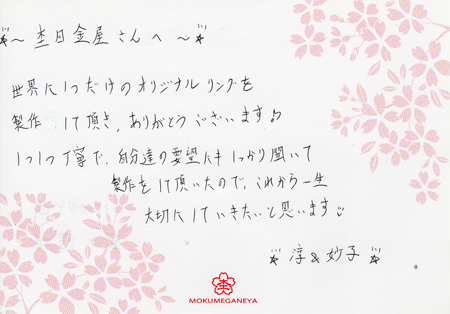 〜 杢目金屋さんへ 〜
世界に1つだけのオリジナルリングを
製作して頂き、ありがとうございます♪
1つ1つ丁寧で、自分達の要望にもしっかり聞いて
製作をして頂いたので、これから一生
大切にしていきたいと思います
淳&妙子
MOKUMEGANEYA